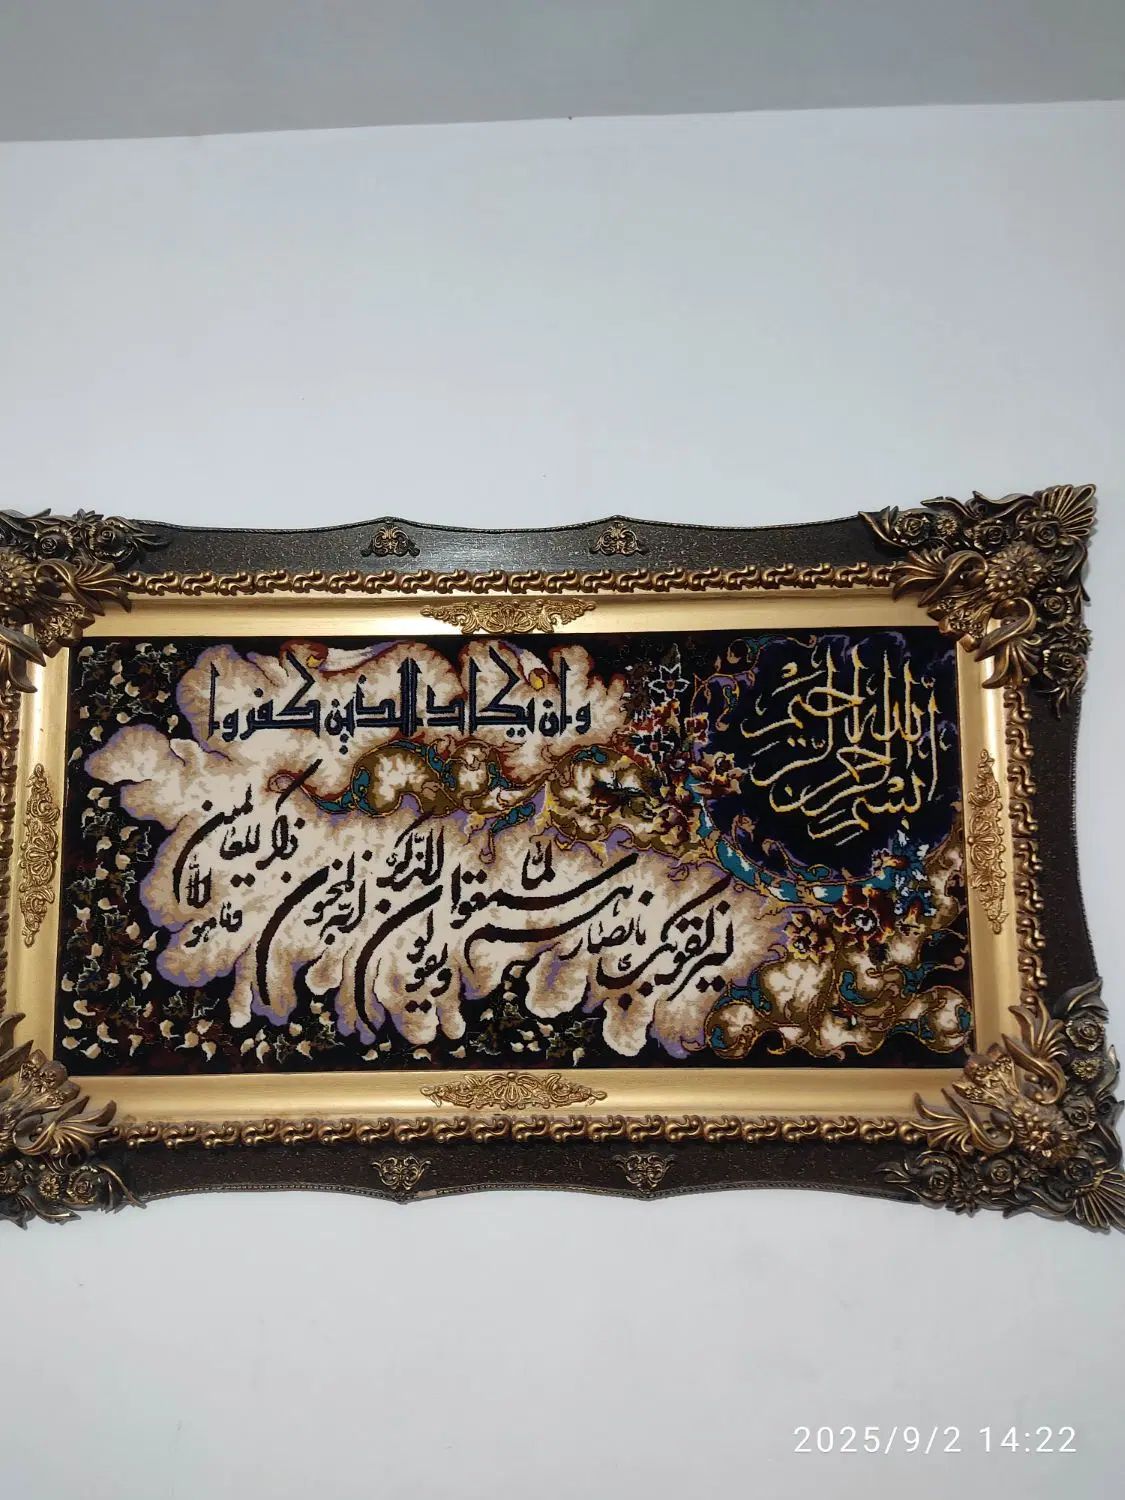 بسم الله الرحمن الرحیم
وان یکاد الذین کفروا
لیزلقونک بابصارهم لما سمعوا الذکر
ویقولون انه لمجنون
وما هو الا ذکر للعالمین
2025/9/2 14:22